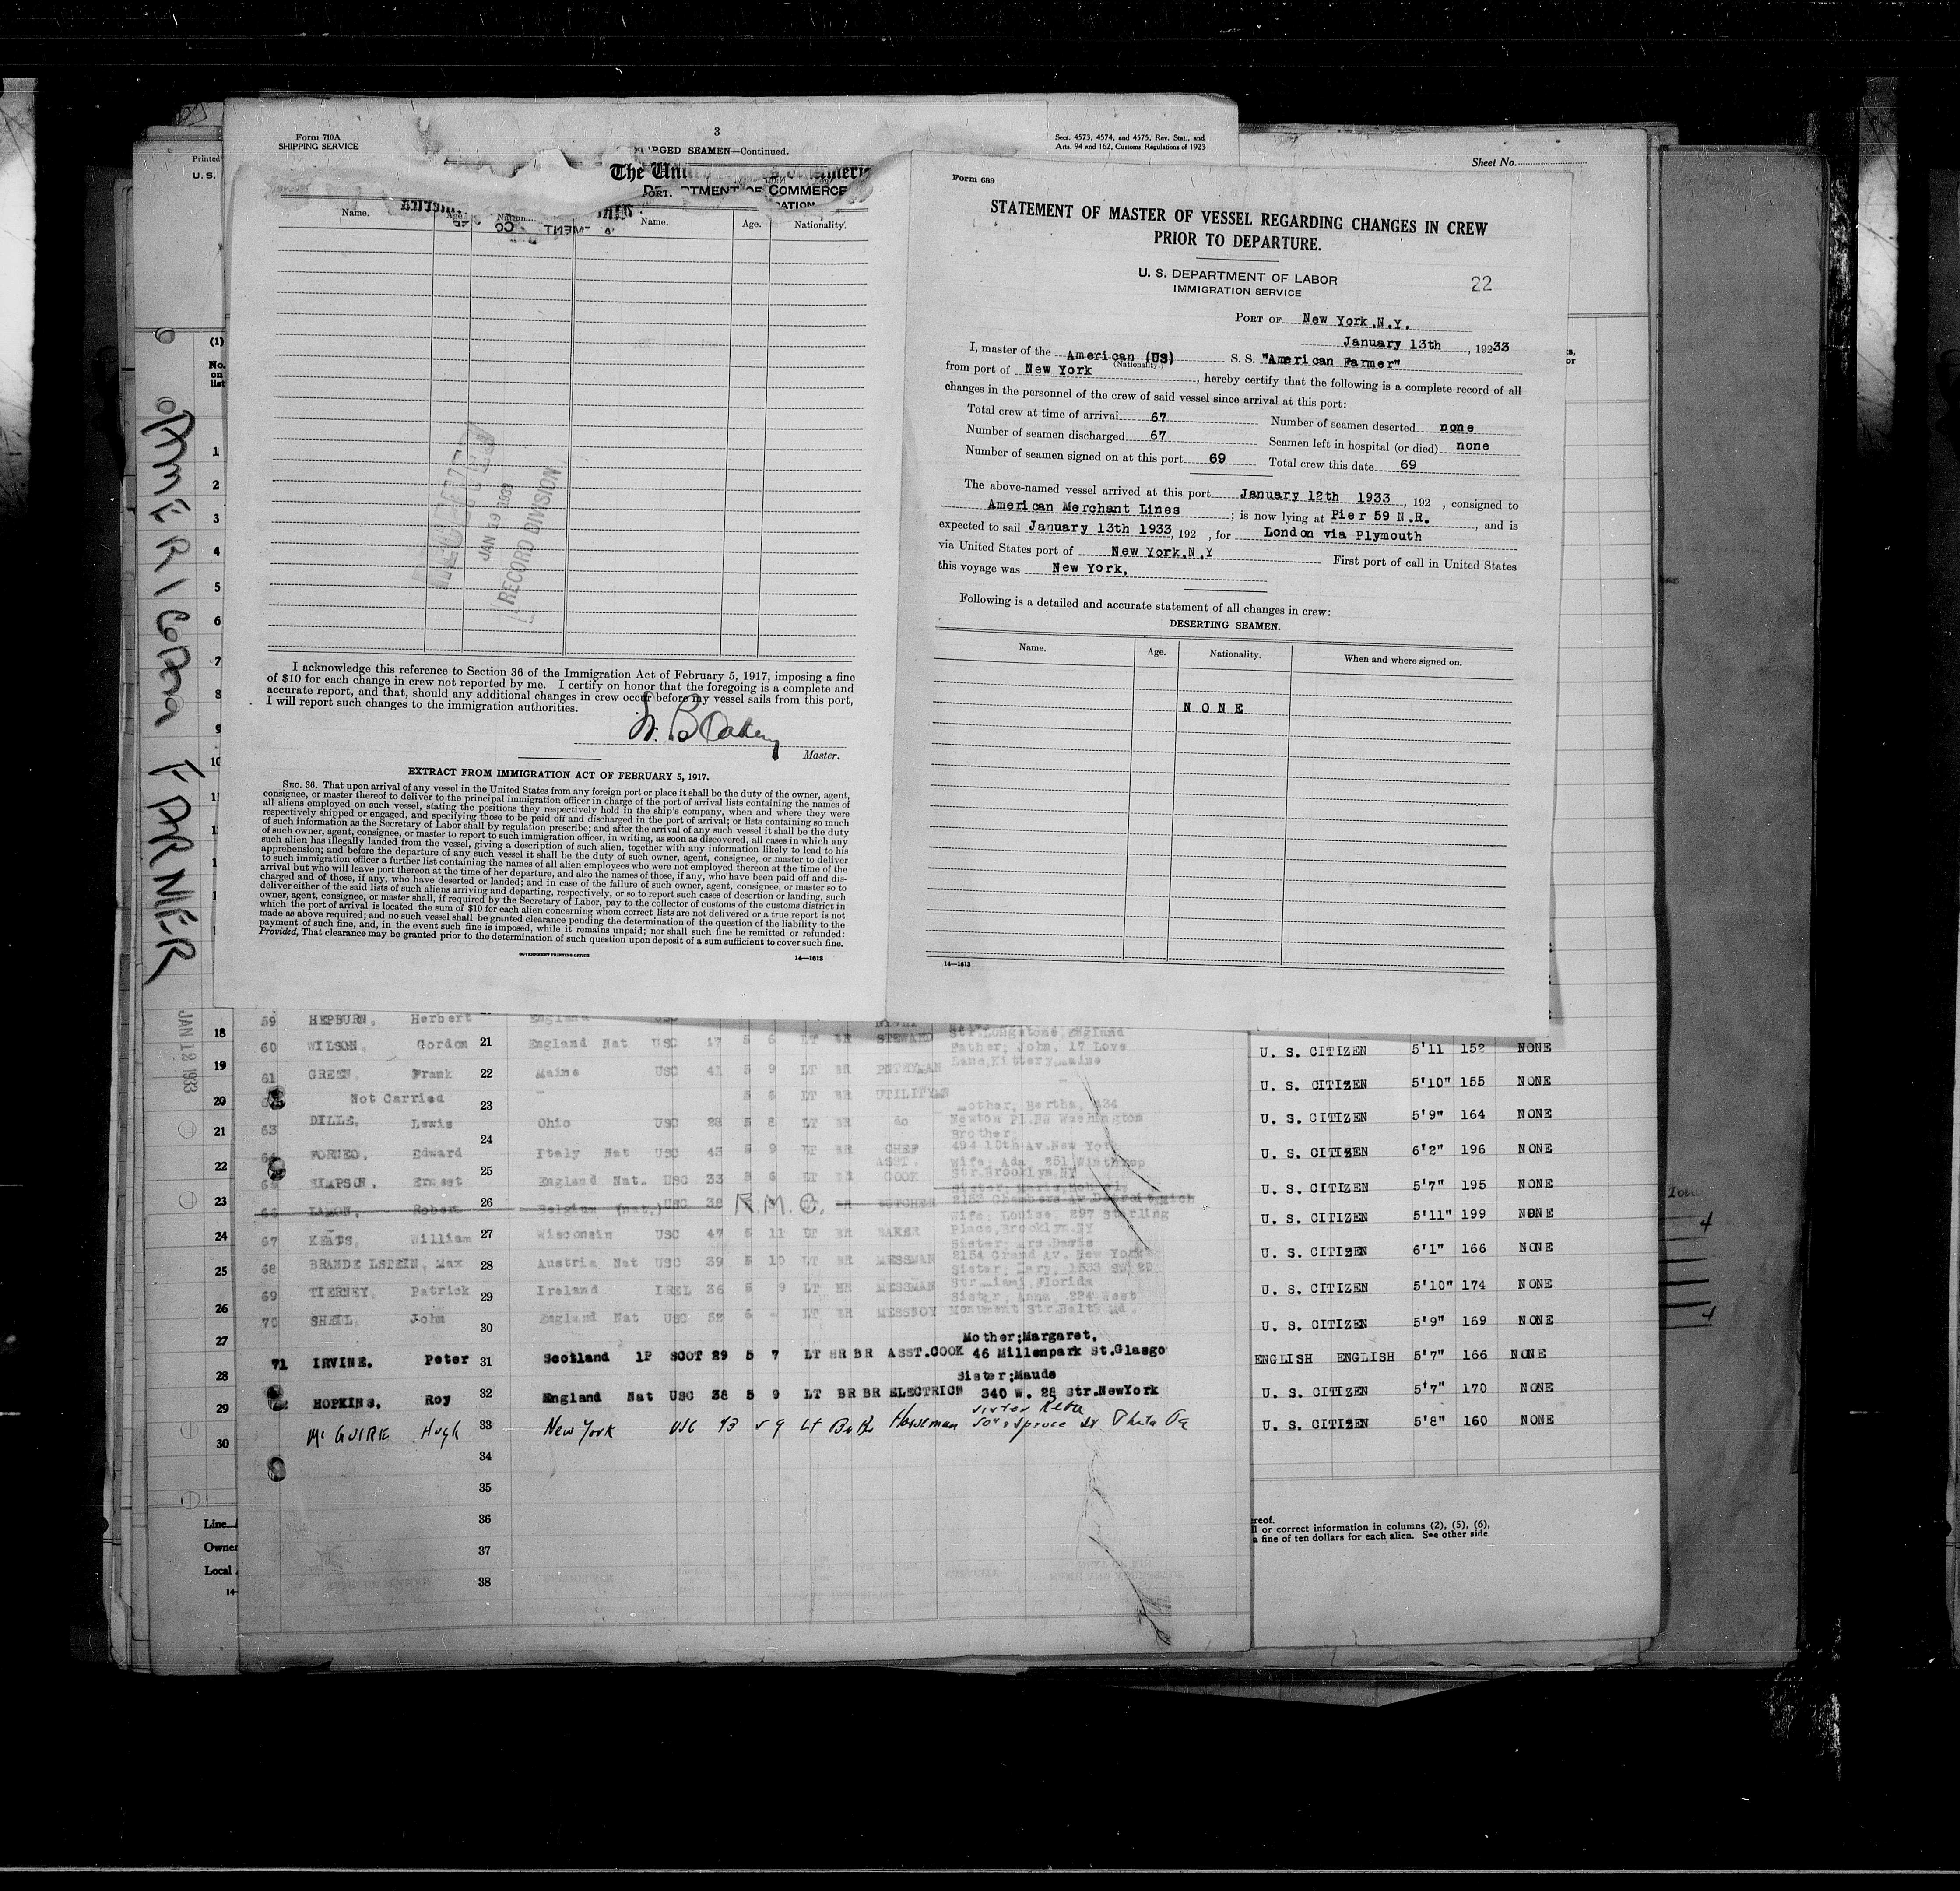 Form 710A
SHIPPING SERVICE
3
Secs. 4573, 4574, and 4575, Rev. Stat., and
Arts. 94 and 162, Customs Regulations of 1923
Sheet No.
Printed
U. S.
SEAMEN—Continued.
The
COMMERCE
Name.
Name.
Age.
Nationality.
JAN 19 1933
RECORD DIVISION
I acknowledge this reference to Section 36 of the Immigration Act of February 5, 1917, imposing a fine
of $10 for each change in crew not reported by me. I certify on honor that the foregoing is a complete and
accurate report, and that, should any additional changes in crew occur before my vessel sails from this port,
I will report such changes to the immigration authorities.
Master.
EXTRACT FROM IMMIGRATION ACT OF FEBRUARY 5, 1917.
SEC. 36. That upon arrival of any vessel in the United States from any foreign port or place it shall be the duty of the owner, agent,
consignee, or master thereof to deliver to the principal immigration officer in charge of the port of arrival lists containing the names of
all aliens employed on such vessel, stating the positions they respectively hold in the ship's company, when and where they were
respectively shipped or engaged, and specifying those to be paid off and discharged in the port of arrival; or lists containing so much
of such information as the Secretary of Labor shall by regulation prescribe; and after the arrival of any such vessel it shall be the duty
of such owner, agent, consignee, or master to report to such immigration officer, in writing, as soon as discovered, all cases in which any
such alien has illegally landed from the vessel, giving a description of such alien, together with any information likely to lead to his
apprehension; and before the departure of any such vessel it shall be the duty of such owner, agent, consignee, or master to deliver
to such immigration officer a further list containing the names of all alien employees who were not employed thereon at the time of the
arrival but who will leave port thereon at the time of her departure, and also the names of those, if any, who have been paid off and dis-
charged and of those, if any, who have deserted or landed; and in case of the failure of such owner, agent, consignee, or master so to
deliver either of the said lists of such aliens arriving and departing, respectively, or so to report such cases of desertion or landing, such
owner, agent, consignee, or master shall, if required by the Secretary of Labor, pay to the collector of customs of the customs district in
which the port of arrival is located the sum of $10 for each alien concerning whom correct lists are not delivered or a true report is not
made as above required; and no such vessel shall be granted clearance pending the determination of the question of the liability to the
payment of such fine, and, in the event such fine is imposed, while it remains unpaid; nor shall such fine be remitted or refunded:
Provided, That clearance may be granted prior to the determination of such question upon deposit of a sum sufficient to cover such fine.
GOVERNMENT PRINTING OFFICE
14—1613
Form 689
STATEMENT OF MASTER OF VESSEL REGARDING CHANGES IN CREW
PRIOR TO DEPARTURE.
U. S. DEPARTMENT OF LABOR
IMMIGRATION SERVICE
22
PORT OF New York.N.Y.
January 13th, 19233
I, master of the American (US) S. S. "American Farmer"
(Nationality)
from port of New York, hereby certify that the following is a complete record of all
changes in the personnel of the crew of said vessel since arrival at this port:
Total crew at time of arrival 67 Number of seamen deserted none
Number of seamen discharged 67 Seamen left in hospital (or died) none
Number of seamen signed on at this port 69 Total crew this date 69
The above-named vessel arrived at this port January 12th 1933, 192 , consigned to
American Merchant Lines; is now lying at Pier 59 N.R., and is
expected to sail January 13th 1933, 192 , for London via Plymouth
via United States port of New York.N.Y First port of call in United States
this voyage was New York.
Following is a detailed and accurate statement of all changes in crew:
DESERTING SEAMEN.
Name. Age. Nationality. When and where signed on.
NONE
14—1613
AMERICAN FARMER
JAN 12 1933
(1)
No.
on
list
59 HEPBURN, Herbert England
60 WILSON, Gordon 21 England Nat USC 47 5 6 LT BR STEWARD Str.Longstone England
Father; John, 17 Love
Lane,Kittery,maine
61 GREEN, Frank 22 Maine USC 41 5 9 LT BR PNTRYMAN
Not Carried 23 5 6 LT BR UTILITYMN
63 DILLE, Lewis Ohio USC 28 5 8 LT BR do Mother; Bertha, 434
Newton Pl.NW Washington
24 Brother
64 FORNEO, Edward Italy Nat USC 43 5 9 LT BR CHEF 494 10th Av.New York
25 ASST. Wife; Ada, 251 Winthrop
65 SIMPSON, Ernest England Nat. USC 33 5 6 LT BR COOK Str.Brooklyn,NY
66 LAMON, Robert 26 Belgium (nat.) USC 38 R.M.C. BR BUTCHER 2152 Chambers Av Detroit,Mich
Wife; Louise, 297 Sterling
67 KEATS, William 27 Wisconsin USC 47 5 11 LT BR BAKER Place,Brooklyn.NY
Sister; Mrs Davis
68 BRANDELSTEIN, Max 28 Austria Nat USC 39 5 10 LT BR MESSMAN 2154 Grand Av. New York
Sister; Mary, 1533 SW 20
69 TIERNEY, Patrick 29 Ireland IREL 36 5 9 LT BR MESSMAN Str miami, Florida
Sister; Anna, 224 West
70 SHELL, John 30 England Nat USC 52 6 - LT BR MESSBOY Monument Str.Balto Md.
Mother;Margaret,
71 IRVINE, Peter 31 Scotland 1P SCOT 29 5 7 LT BR BR ASST.COOK 46 Millenpark St.Glasgo
Sister;Maude
HOPKINS, Roy 32 England Nat USC 38 5 9 LT BR BR ELECTRICN 340 W. 28 Str.NewYork
Sister Reba
McGUIRE Hugh 33 New York USC 43 5 9 LT Br Br Spruce St Phila Pa
34
35
36
37
38
U. S. CITIZEN 5'11 152 NONE
U. S. CITIZEN 5'10" 155 NONE
U. S. CITIZEN 5'9" 164 NONE
U. S. CITIZEN 6'2" 196 NONE
U. S. CITIZEN 5'7" 195 NONE
U. S. CITIZEN 5'11" 199 NONE
U. S. CITIZEN 6'1" 166 NONE
U. S. CITIZEN 5'10" 174 NONE
U. S. CITIZEN 5'9" 169 NONE
ENGLISH ENGLISH 5'7" 166 NONE
U. S. CITIZEN 5'7" 170 NONE
U. S. CITIZEN 5'8" 160 NONE
reof.
l or correct information in columns (2), (5), (6),
a fine of ten dollars for each alien. See other side.
Line
Owner
Local
14-